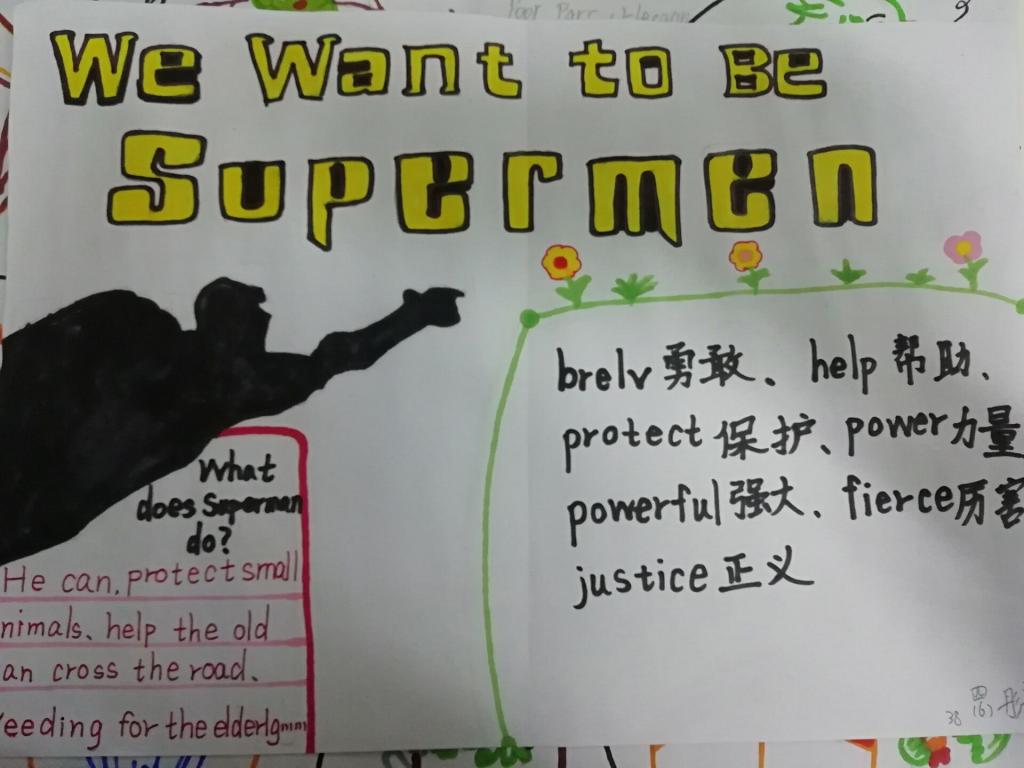 We Want to Be
Supermen
brelv 勇敢、help 帮助、
protect 保护、power 力量
powerful 强大、fierce 厉害
justice 正义
What
does Supermen
do?
He can, protect small
nimals、help the old
an cross the road、
eeding for the elderlg
四
38 (6)